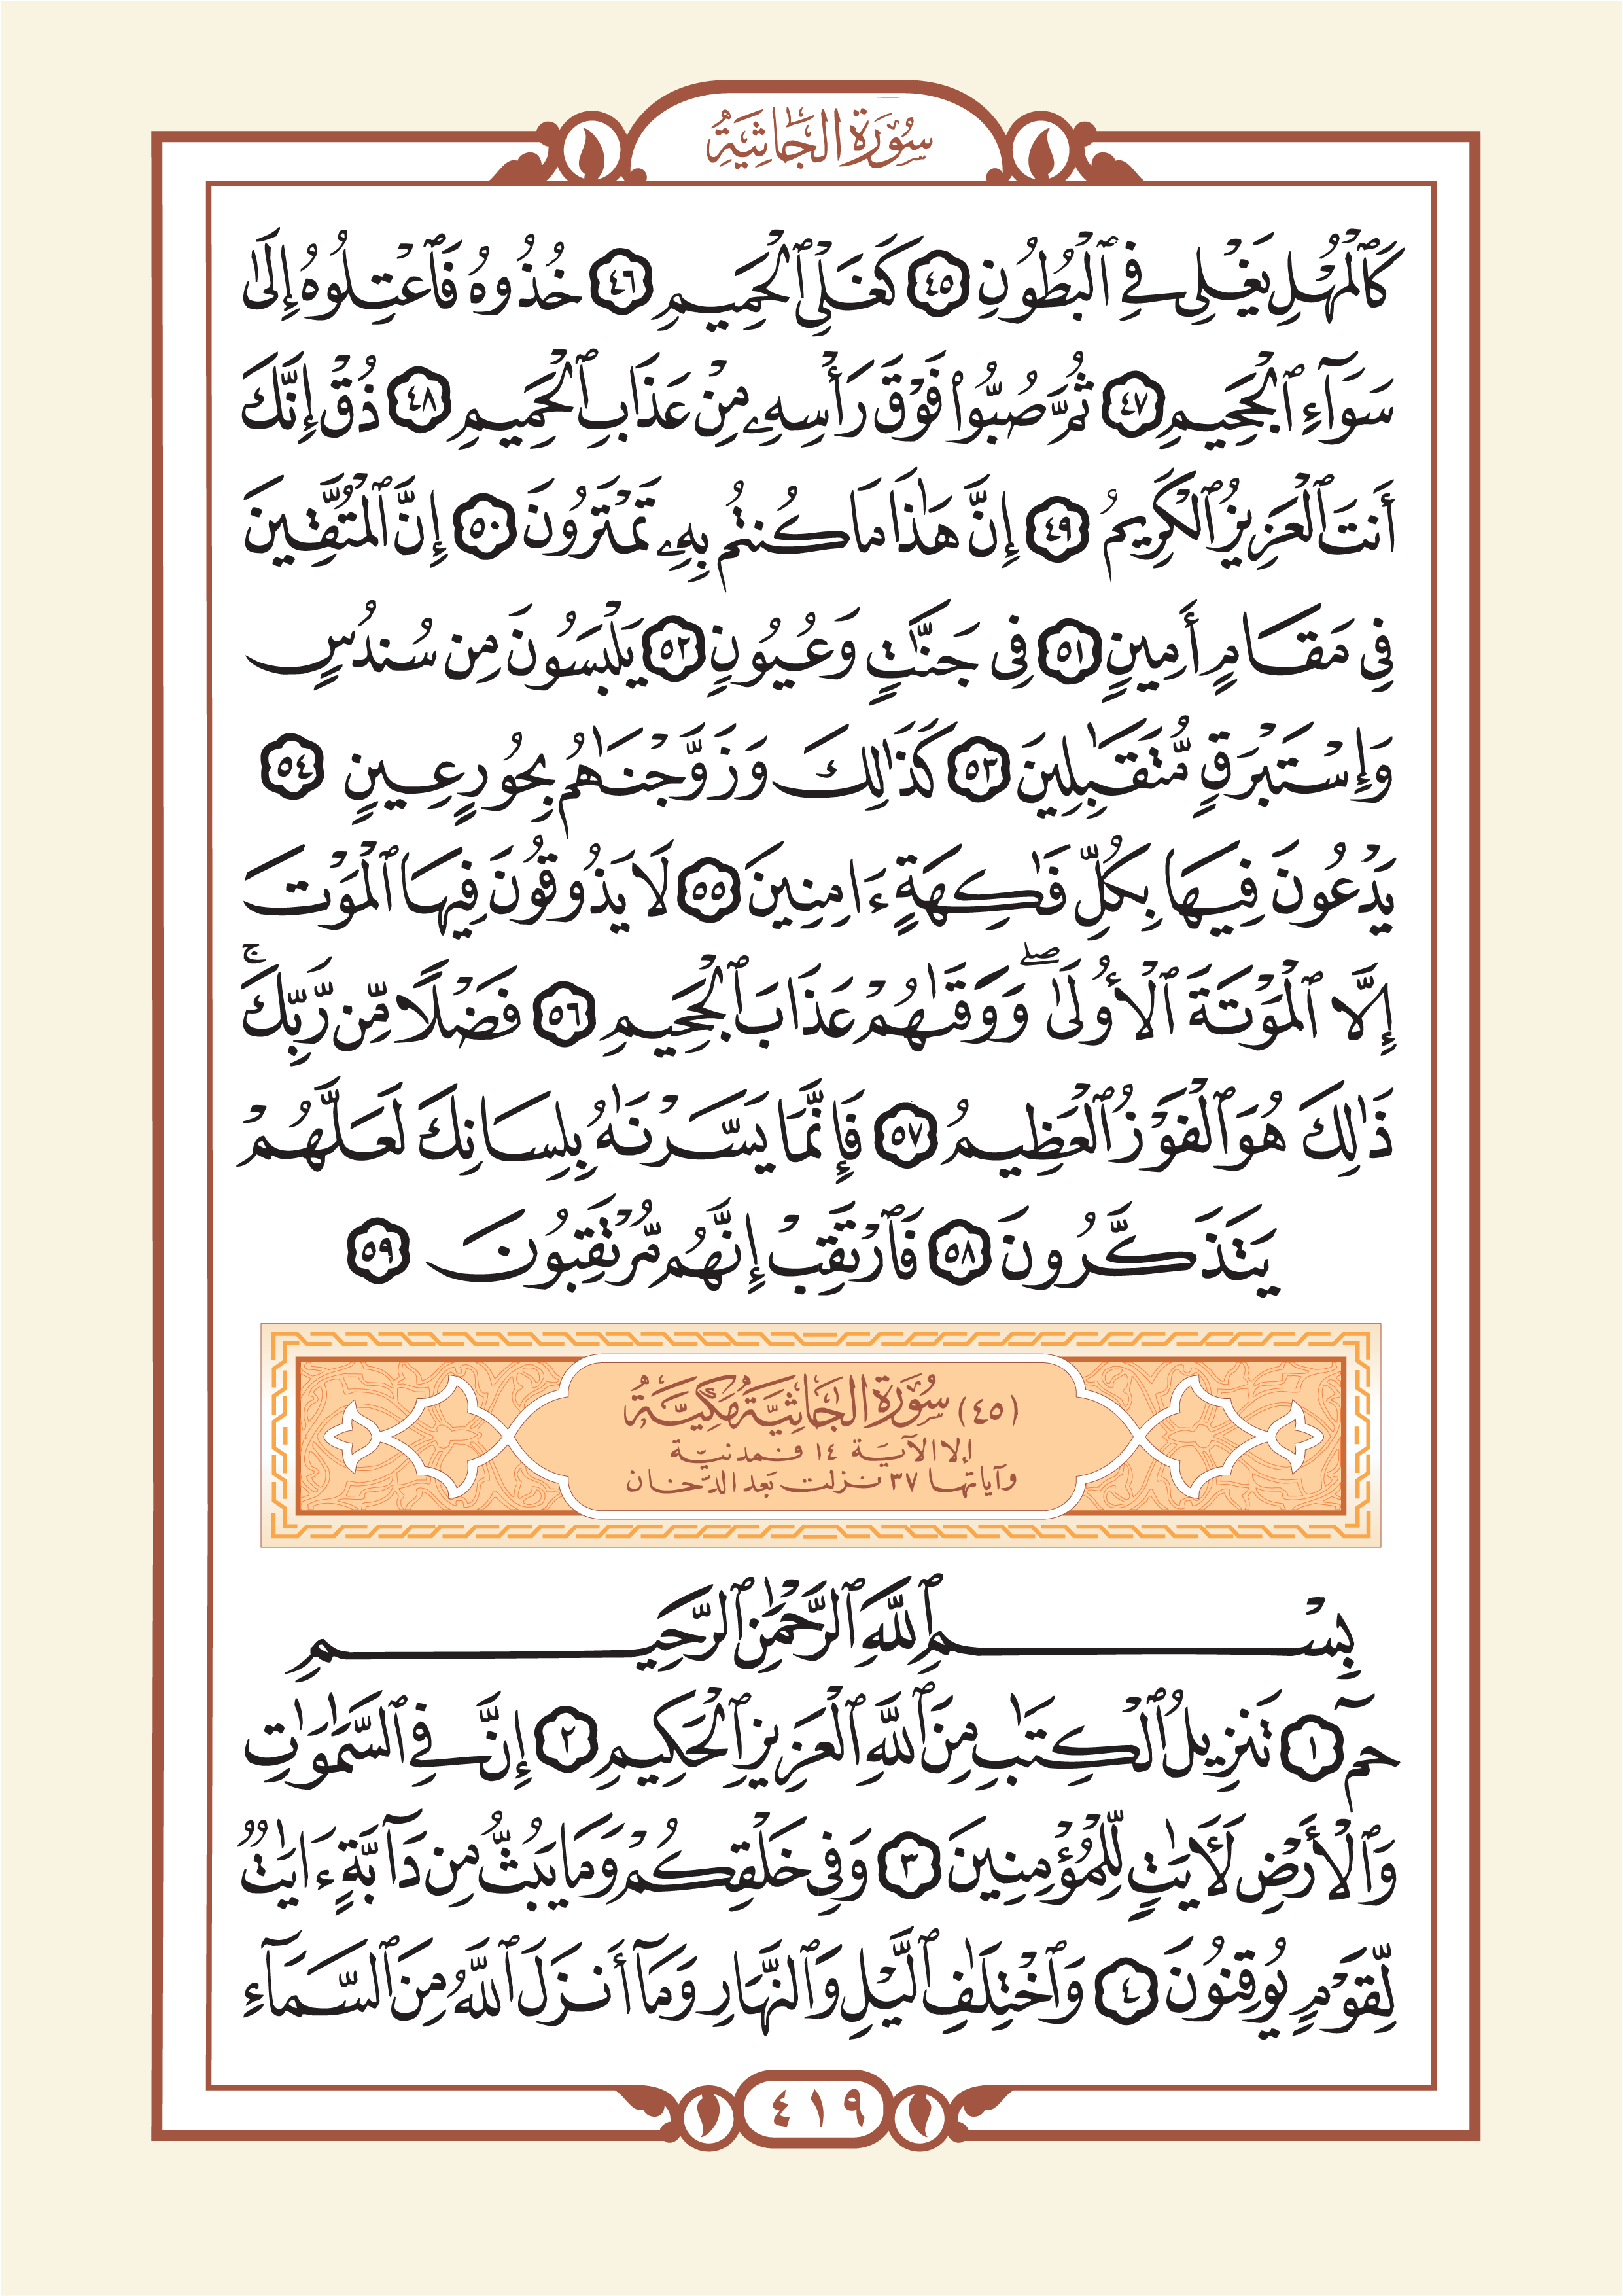 سُورَةُ الجَاثِيَةِ
كَٱلْمُهْلِ يَغْلِى فِى ٱلْبُطُونِ ٤٥ كَغَلْىِ ٱلْحَمِيمِ ٤٦ خُذُوهُ فَٱعْتِلُوهُ إِلَىٰ
سَوَآءِ ٱلْجَحِيمِ ٤٧ ثُمَّ صُبُّوا۟ فَوْقَ رَأْسِهِۦ مِنْ عَذَابِ ٱلْحَمِيمِ ٤٨ ذُقْ إِنَّكَ
أَنتَ ٱلْعَزِيزُ ٱلْكَرِيمُ ٤٩ إِنَّ هَـٰذَا مَا كُنتُم بِهِۦ تَمْتَرُونَ ٥٠ إِنَّ ٱلْمُتَّقِينَ
فِى مَقَامٍ أَمِينٍ ٥١ فِى جَنَّـٰتٍ وَعُيُونٍ ٥٢ يَلْبَسُونَ مِن سُندُسٍ
وَإِسْتَبْرَقٍ مُّتَقَـٰبِلِينَ ٥٣ كَذَٰلِكَ وَزَوَّجْنَـٰهُم بِحُورٍ عِينٍ ٥٤
يَدْعُونَ فِيهَا بِكُلِّ فَـٰكِهَةٍ ءَامِنِينَ ٥٥ لَا يَذُوقُونَ فِيهَا ٱلْمَوْتَ
إِلَّا ٱلْمَوْتَةَ ٱلْأُولَىٰ ۖ وَوَقَىٰهُمْ عَذَابَ ٱلْجَحِيمِ ٥٦ فَضْلًا مِّن رَّبِّكَ ۚ
ذَٰلِكَ هُوَ ٱلْفَوْزُ ٱلْعَظِيمُ ٥٧ فَإِنَّمَا يَسَّرْنَـٰهُ بِلِسَانِكَ لَعَلَّهُمْ
يَتَذَكَّرُونَ ٥٨ فَٱرْتَقِبْ إِنَّهُم مُّرْتَقِبُونَ ٥٩
(٤٥) سُورَةُ الجَاثِيَةِ مَكِيَّةٌ
إلا الآية ١٤ فمدنيّة
وآياتها ٣٧ نزلت بَعد الدّخان
بِسْمِ ٱللَّهِ ٱلرَّحْمَـٰنِ ٱلرَّحِيمِ
حمٓ ١ تَنزِيلُ ٱلْكِتَـٰبِ مِنَ ٱللَّهِ ٱلْعَزِيزِ ٱلْحَكِيمِ ٢ إِنَّ فِى ٱلسَّمَـٰوَٰتِ
وَٱلْأَرْضِ لَـَٔايَـٰتٍ لِّلْمُؤْمِنِينَ ٣ وَفِى خَلْقِكُمْ وَمَا يَبُثُّ مِن دَآبَّةٍ ءَايَـٰتٌ
لِّقَوْمٍ يُوقِنُونَ ٤ وَٱخْتِلَـٰفِ ٱلَّيْلِ وَٱلنَّهَارِ وَمَآ أَنزَلَ ٱللَّهُ مِنَ ٱلسَّمَآءِ
٤١٩